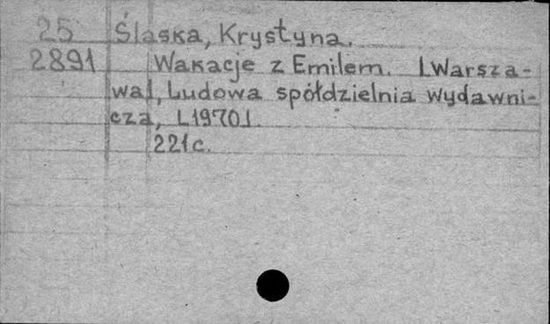 25 Ślaska, Krystyna.
2891 Wakacje z Emilem. [Warsza-
wa], Ludowa spółdzielnia wydawni-
cza, [1970].
221c.